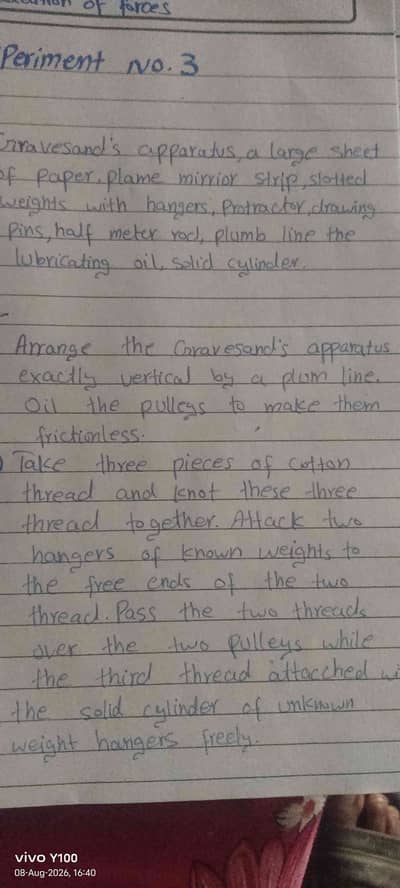 of forces
Periment No. 3
Gravesand's apparatus, a large sheet
of paper, plame mirrior strip, slotted
weights with hangers, protractor, drawing
pins, half meter rod, plumb line the
lubricating oil, solid cylinder.
Arrange the Gravesand's apparatus
exactly vertical by a plum line.
Oil the pulleys to make them
frictionless.
Take three pieces of cotton
thread and knot these three
thread together. Attack two
hangers of known weights to
the free ends of the two
thread. Pass the two threads
over the two pulleys while
the third thread attacched wi
the solid cylinder of unknown
weight hangers freely.
vivo Y100
08-Aug-2026, 16:40